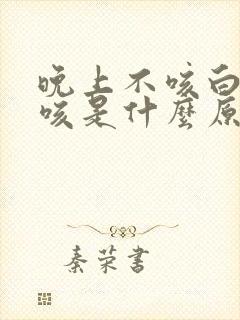 晚上不咳白
咳是什麼原
秦荣書